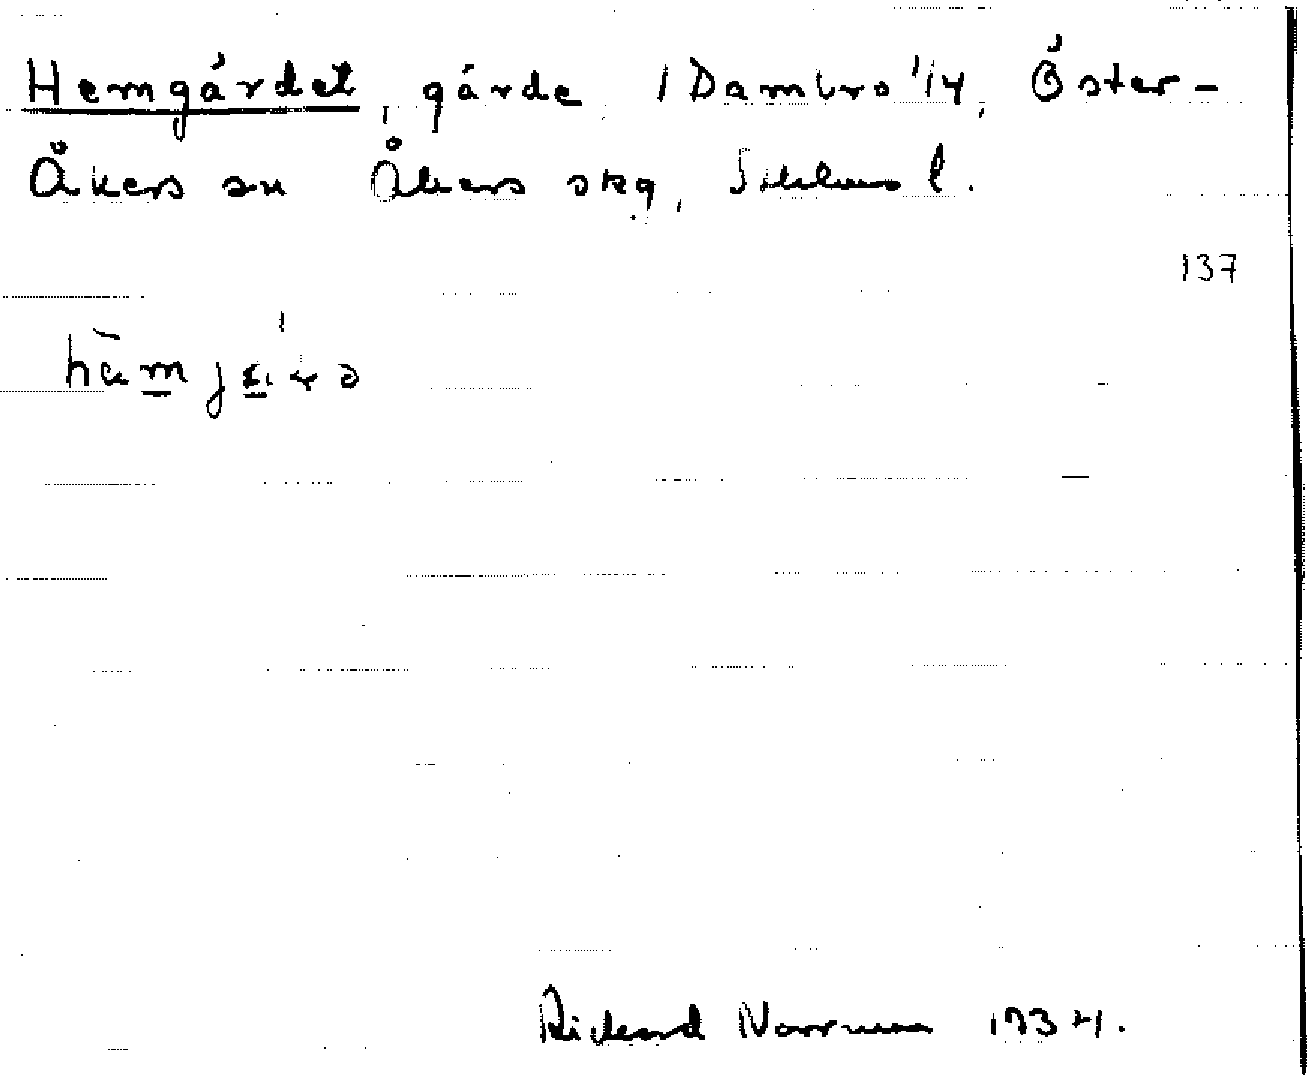 Hemgärdet, gärde i Dambro 1/4, Öster-
Åkers sn Åkers skg, Sthlms l.
137
Rickard Norrman 1934.